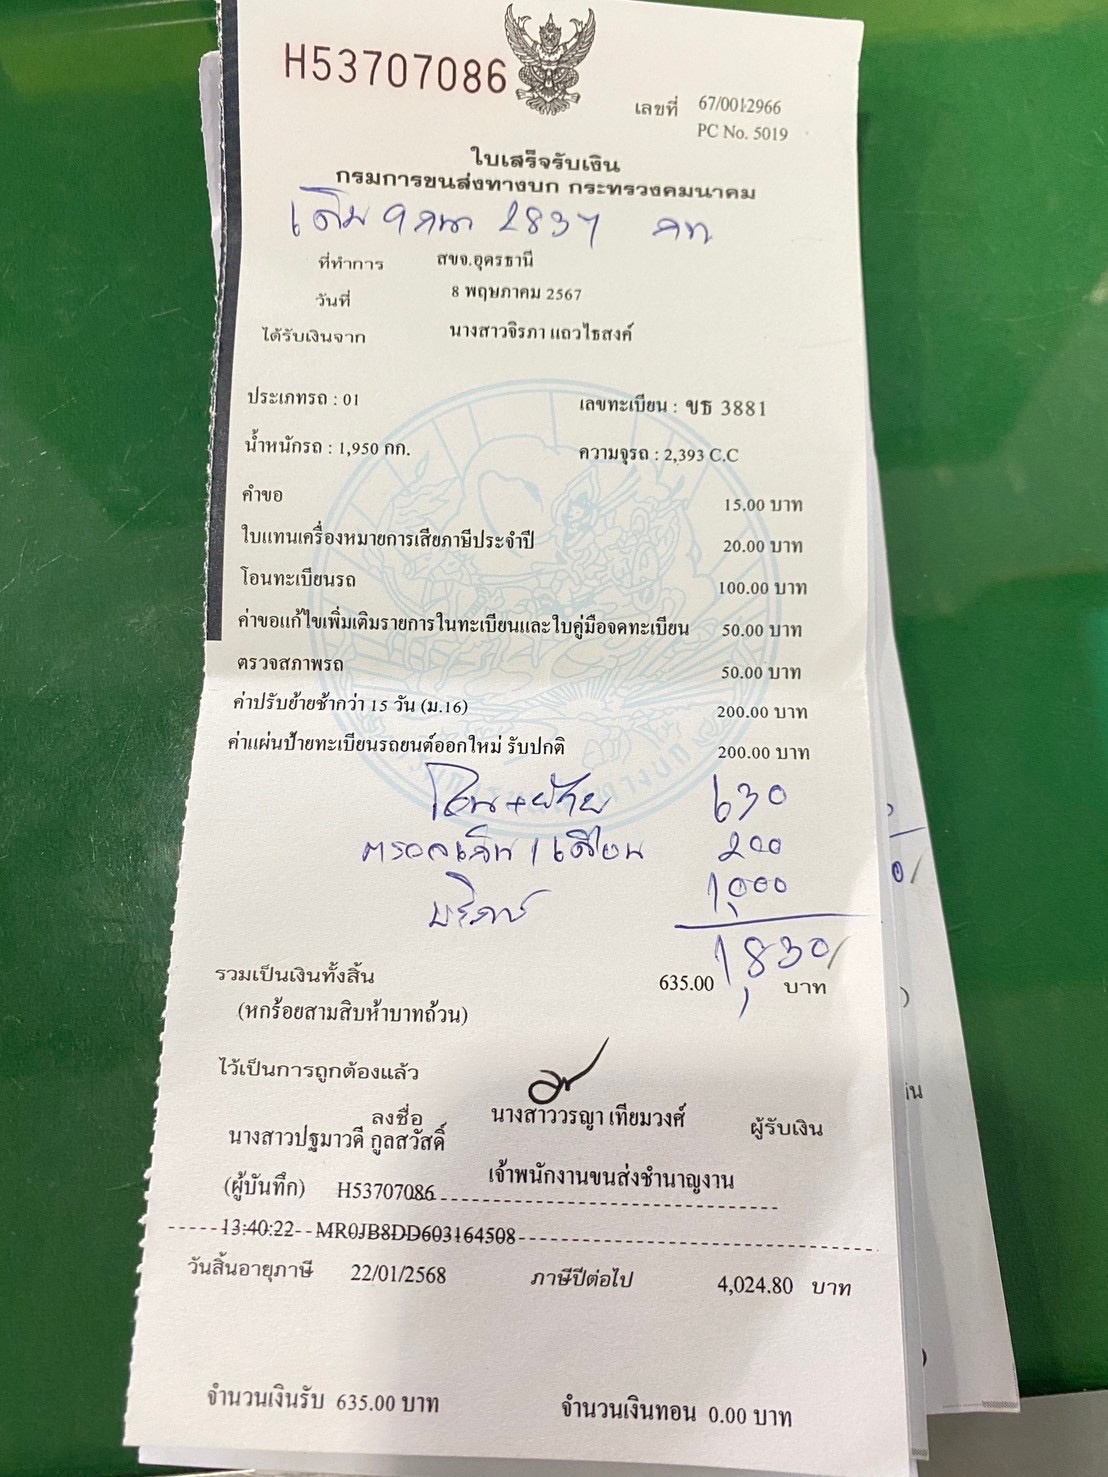 H53707086
เลขที่ 67/0012966
PC No. 5019
ใบเสร็จรับเงิน
กรมการขนส่งทางบก กระทรวงคมนาคม
เดิม 2837
ที่ทำการ สขจ.อุดรธานี
วันที่ 8 พฤษภาคม 2567
ได้รับเงินจาก นางสาวจิรภา แถวไธสงค์
ประเภทรถ : 01 เลขทะเบียน : ขธ 3881
น้ำหนักรถ : 1,950 กก. ความจุรถ : 2,393 C.C
คำขอ 15.00 บาท
ใบแทนเครื่องหมายการเสียภาษีประจำปี 20.00 บาท
โอนทะเบียนรถ 100.00 บาท
ค่าขอแก้ไขเพิ่มเติมรายการในทะเบียนและใบคู่มือจดทะเบียน 50.00 บาท
ตรวจสภาพรถ 50.00 บาท
ค่าปรับย้ายช้ากว่า 15 วัน (ม.16) 200.00 บาท
ค่าแผ่นป้ายทะเบียนรถยนต์ออกใหม่ รับปกติ 200.00 บาท
โอน+ย้าย 630
ตรอ 200
บริการ 1,000
1,830/
รวมเป็นเงินทั้งสิ้น 635.00 บาท
(หกร้อยสามสิบห้าบาทถ้วน)
ไว้เป็นการถูกต้องแล้ว
ลงชื่อ นางสาววรญา เทียมวงศ์ ผู้รับเงิน
นางสาวปฐมาวดี กูลสวัสดิ์
(ผู้บันทึก) H53707086 เจ้าพนักงานขนส่งชำนาญงาน
13:40:22 MR0JB8DD603164508
วันสิ้นอายุภาษี 22/01/2568 ภาษีปีต่อไป 4,024.80 บาท
จำนวนเงินรับ 635.00 บาท จำนวนเงินทอน 0.00 บาท